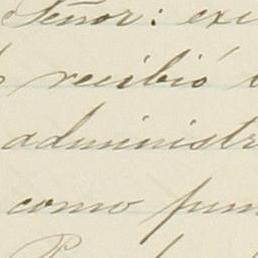 Señor: exi
recibió
administr
como fun